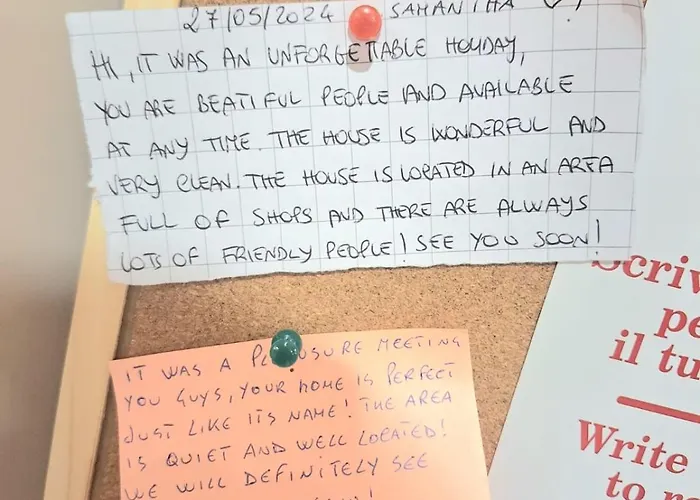 27/05/2024 SAMANTHA
HI, IT WAS AN UNFORGETTABLE HOLIDAY,
YOU ARE BEATIFUL PEOPLE AND AVAILABLE
AT ANY TIME. THE HOUSE IS WONDERFUL AND
VERY CLEAN. THE HOUSE IS LOCATED IN AN AREA
FULL OF SHOPS AND THERE ARE ALWAYS
LOTS OF FRIENDLY PEOPLE! SEE YOU SOON!
IT WAS A PLEASURE MEETING
YOU GUYS, YOUR HOME IS PERFECT
JUST LIKE ITS NAME! THE AREA
IS QUIET AND WELL LOCATED!
WE WILL DEFINITELY SEE
Scriv
pe
il tu
Write
to